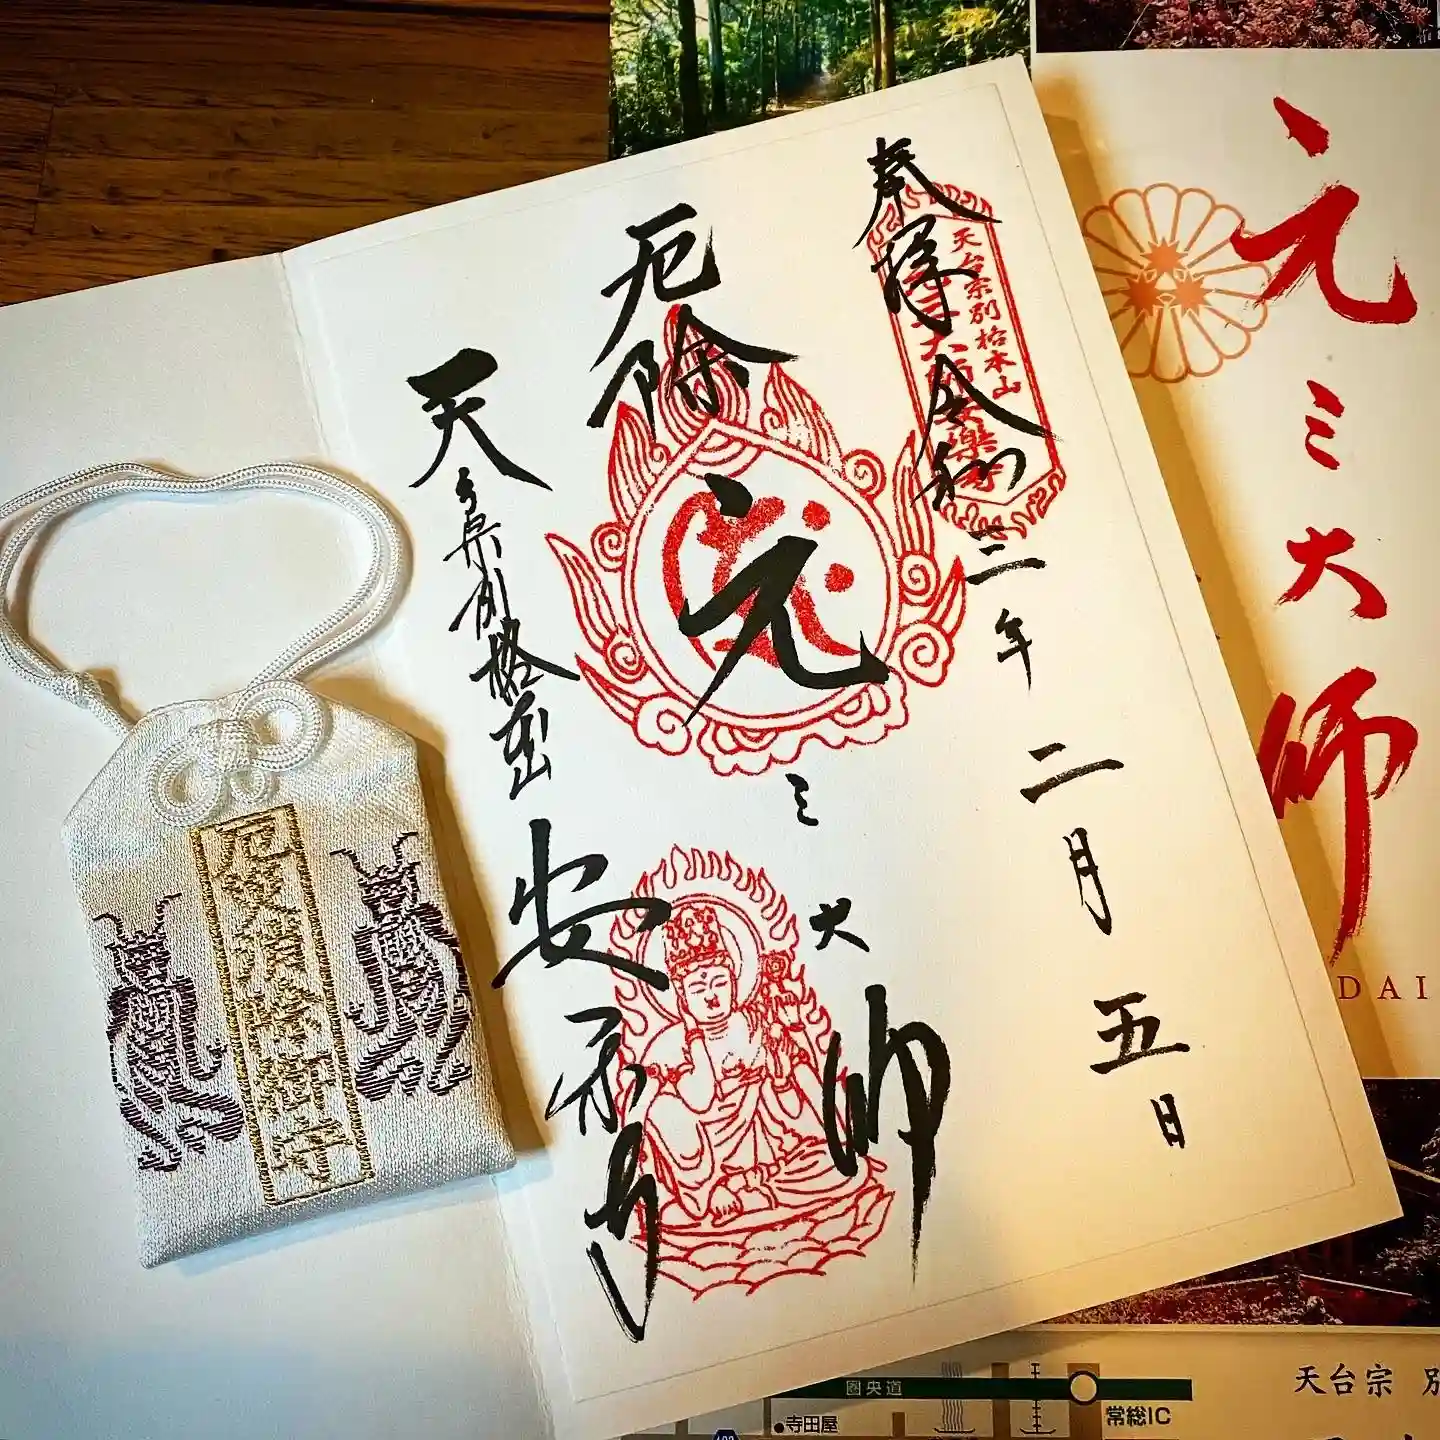 奉拝 令和三年二月五日
天台宗別格本山
元三大師安楽寺
厄除
元三大師
天台宗別格本山
安楽寺
厄災消除御守
元三大師
DAI
圏央道
寺田屋
常総IC
天台宗 別